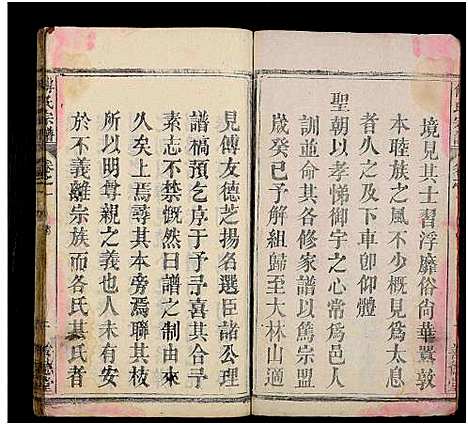 境見其士習浮靡俗尙華置敦
本睦族之風不少概見爲太息
者久之及下車卽仰體
聖朝以孝悌御宇之心常爲邑人
訓並命各修家譜以篤宗盟
歲癸已予解組歸至大林山適
見傅友德芝揚名選臣諸公理
譜稿預乞序于予予喜其合予
素志不禁慨然曰譜之制由來
久矣上焉尋其本旁焉聯其枝
所以明尊親之義也人未有安
於不義離宗族而各氏其氏者
傅氏宗譜
卷之一